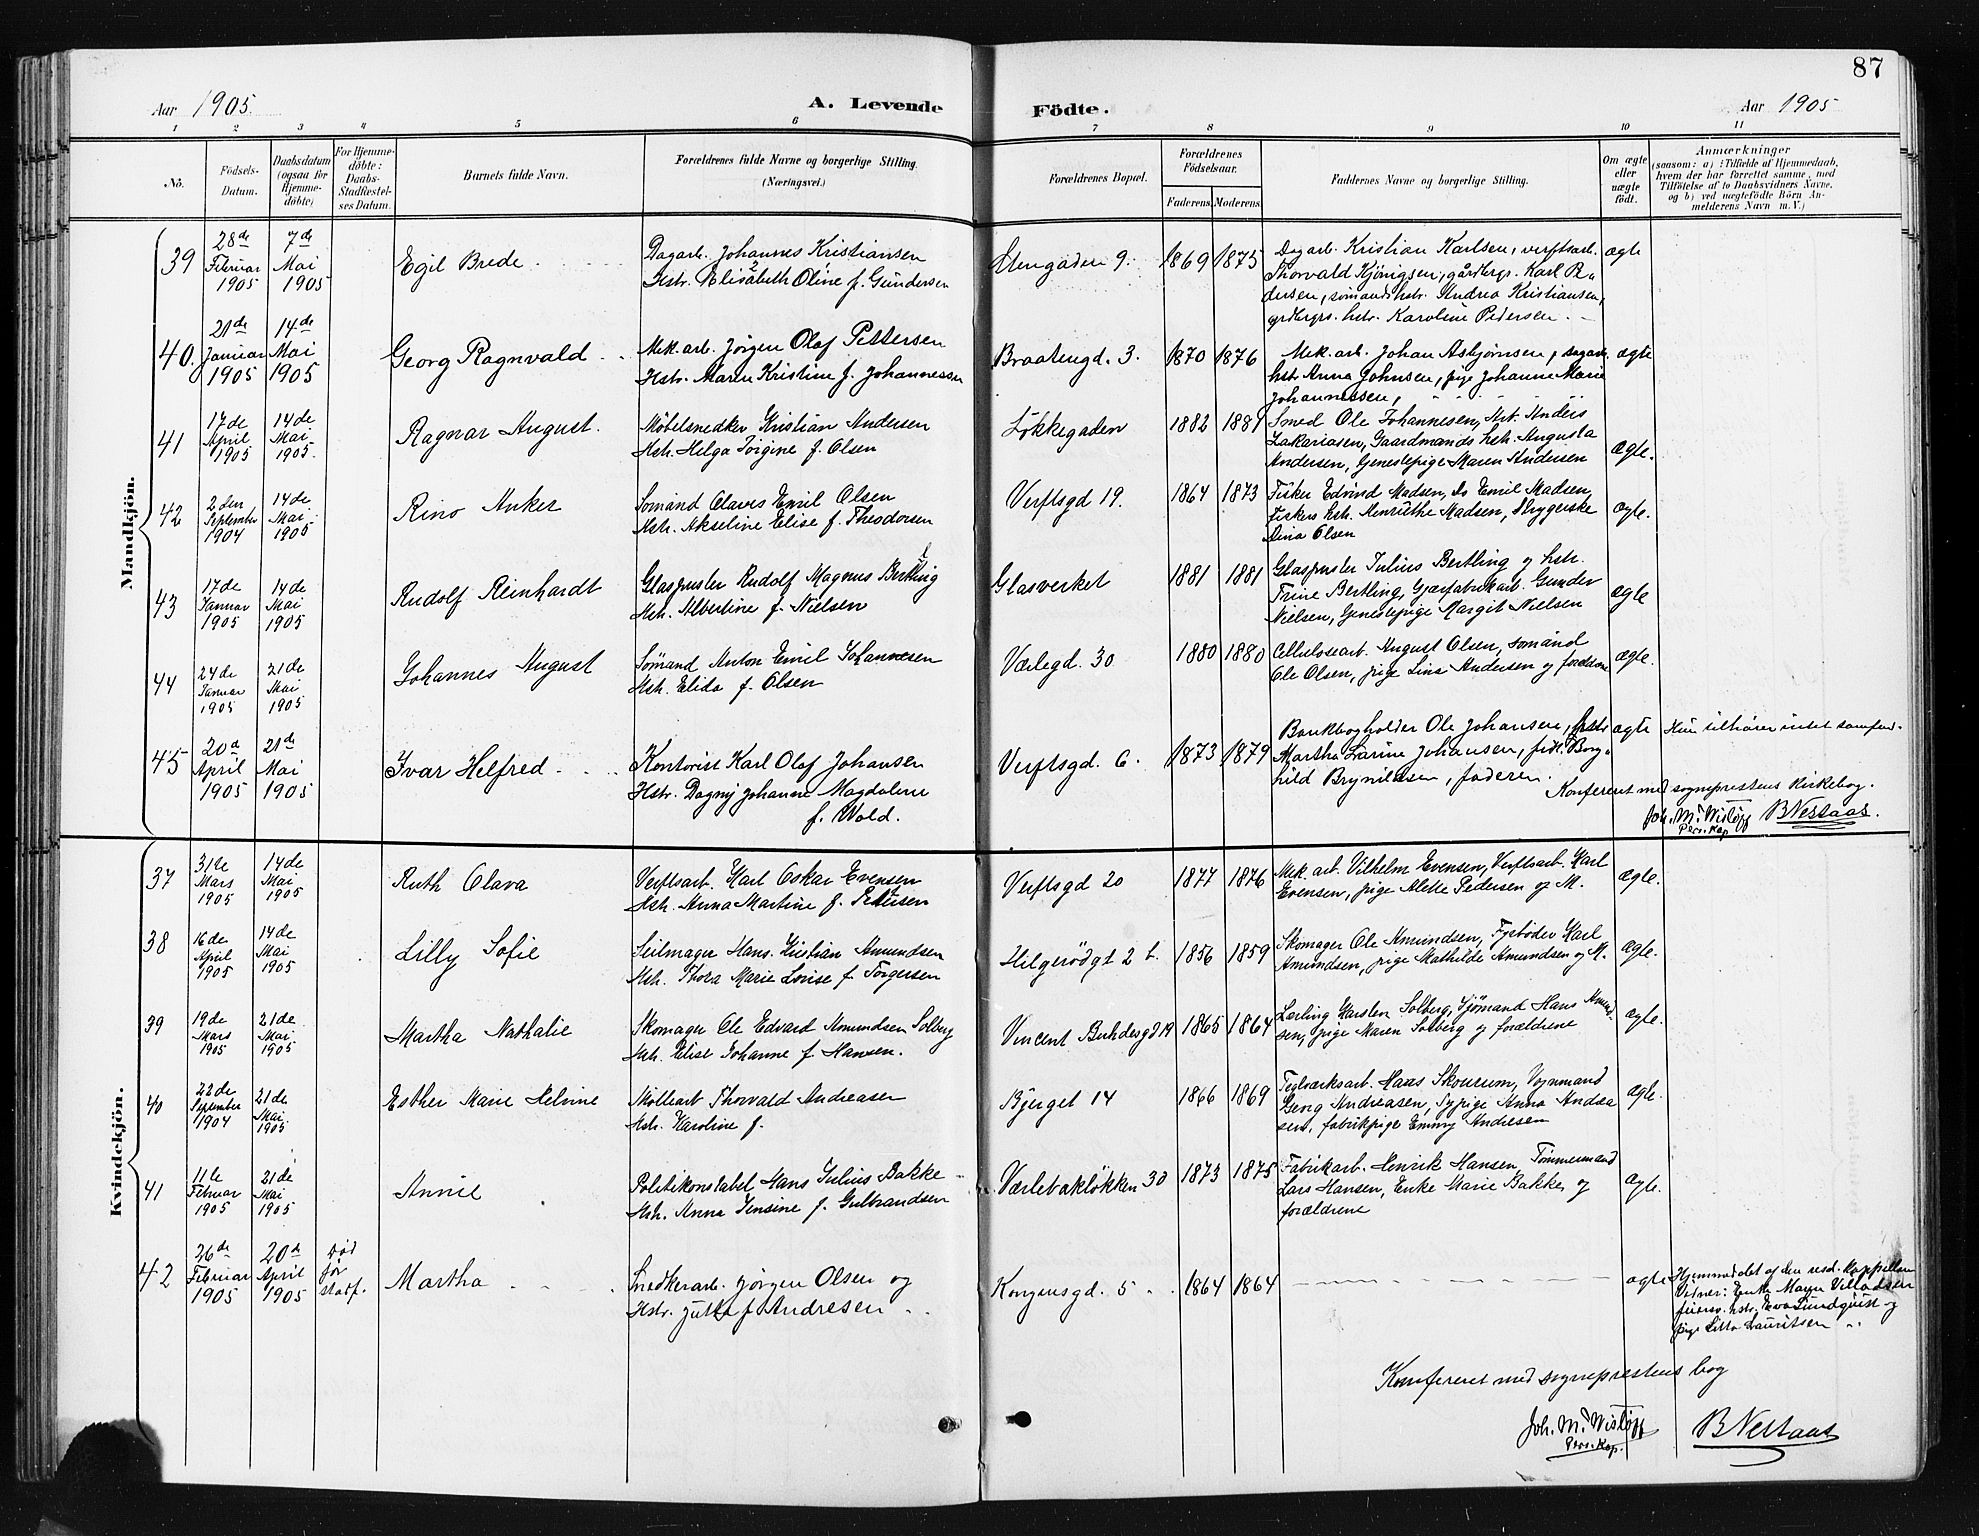 87
Aar 1905.
A. Levende
Födte.
Aar 1905
1 2 3 4 5 6 7 8 9 10 11
No.
Födsels-
Datum.
Daabsdatum
(ogsaa for
Hjemme-
döbte)
For Hjemme-
döbte:
Daabs-
Stadfæstel-
ses Datum.
Barnets fulde Navn.
Forældrenes fulde Navne og borgerlige Stilling.
(Næringsvei.)
Forældrenes Bopæl.
Forældrenes
Födselsaar.
Faderens. Moderens.
Faddernes Navne og borgerlige Stilling.
Om ægte
eller
uægte
födt.
Anmærkninger
(saasom: a) i Tilfælde af Hjemmedaab,
hvem der har forrettet samme, med
Tilföielse af to Daabsvidners Navne,
og b) ved uægtefödte Börn An-
melderens Navn m. V.)
Mandkjön.
39
28de
Februar
1905
7de
Mai
1905
Egil Brede
Dagarb. Johannes Kristiansen
Hstr. Elisabeth Oline f. Gundersen
9.
1869 1875
Dagarb. Kristian Karlsen, verftsarb.
Thorvald Kjönigsen, gårdbrgs. Karl Pe-
dersen, sömands hstr. Andrea Kristiansen,
grdbrgrs. hstr. Karoline Pedersen.
ægte
40.
21de
Januar
1905
14de
Mai
1905
Georg Ragnvald
Mek. arb. Jørgen Olaf Pettersen
Hstr. Maren Kristine f. Johannessen
Braatengd. 3.
1870 1876
Mek. arb. Johan Asbjørnsen, dagarb.
hstr. Anna Johnsen, pige Johanne Marie
Johannessen,
ægte
41
17de
April
1905
14de
Mai
1905.
Ragnar August.
Möbelsnedker Kristian Andersen
Hstr. Helga Jörgine f. Olsen
Løkkegaden
1882 1881
Smed Ole Johannesen, Arb. Anders
Zakariasen, Gaardmands hstr. Augusta
Andersen, Tjenestepige Maren Andersen
ægte.
42
2den
September
1904
14de
Mai
1905
Rino Anker
Sömand Olaves Emil Olsen
Hstr. Akseline Elise f. Theodorsen
Verftsgd 19.
1864 1873
Fisker Edvind Madsen, Do Emil Madsen,
Fiskers hstr. Henriethe Madsen, Strygerske
Dina Olsen
ægte.
43
17de
Januar
1905
14de
Mai
1905
Rudolf Reinhardt
Glaspuster Rudolf Magnus Bertling
Hstr. Albertine f. Nielsen
Glasverket
1881 1881
Glaspuster Julius Bertling og hstr.
Trine Bertling, Gjærfabrikarb. Gunder
Nielsen, Tjenestepige Margit Nielsen
ægte
44
24de
Januar
1905
21de
Mai
1905
Johannes August
Sömand Anton Emil Johannesen
Hstr. Elida f. Olsen
Værlegd. 30
1880 1880
Cellulosearb. August Olsen, Sömand
Ole Olsen, pige Lina Andersen og forældrene
ægte.
45
20d
April
1905
21de
Mai
1905
Ivar Helfred
Kontorist Karl Olaf Johansen
Hstr. Dagny Johanne Magdalene
f. Wold.
Verftsgd. 6.
1873 1879
Bankbogholder Ole Johansen, hstr.
Martha Larine Johansen, frk. Borg-
hild Brynildsen, faderen.
ægte
Hun tilhører intet samfund.
Konfereret med sogneprestens kirkebog.
Joh. M. Wisløff
Pers. Kap.
B Nestaas.
Kvindekjön.
37
31te
Mars
1905
14de
Mai
1905
Ruth Olava
Verftsarb. Karl Oskar Evensen
Hstr. Anna Martine f. Petersen
Verftsgd 20
1877 1876
Mek. arb. Vilhelm Evensen, Verftsarb. Karl
Evensen, pige Alette Pedersen og M.
ægte.
38
16de
April
1905
14de
Mai
1905
Lilly Sofie
Seilmager Hans Kristian Amundsen
Hstr. Thora Marie Lovise f. Torgersen
Helgerödgt 2 b.
1856 1859
Skomager Ole Amundsen, Fyrböder Karl
Amundsen, pige Mathilde Amundsen og M.
ægte.
39
19de
Mars
1905
21de
Mai
1905
Martha Nathalie
Skomager Ole Edvard Amundsen Solberg
Hstr. Elise Johanne f. Hansen.
Vincent Buhdesgd 19
1865 1864
Lærling Karsten Solberg, Sjömand Hans Amund-
sen, pige Maren Solberg og forældrene
ægte.
40
22de
September
1904
21de
Mai
1905
Esther Marie Helvine
Thorvald Andreasen
Hstr. Karoline f.
Bjerget 14
1866 1869
Teglværksarb. Hans Skourum, Vognmand
Georg Andreasen, Sypige Anna Andrea
sen, fabrikpige Emmy Andresen
ægte.
41
11te
Februar
1905
21de
Mai
1905
Annie
Politikonstabel Hans Julius Bakke
Hstr. Anna Jensine f. Gulbrandsen
Værlebakløkken 30
1873 1875
Fabrikarb. Henrik Hansen, Tömmermand
Lars Hansen, Enke Marie Bakke og
forældrene
ægte.
42
26de
Februar
1905
20d
April
1905
Død
før
stadf.
Martha
Snedkerarb. Jörgen Olsen og
Hstr. Jutta f. Andresen
Kongensgd. 5
1864 1864
ægte
Hjemmedøbt af den resd. kappellan
Vitner: Enke Maren Villadsen
hstr. Eva Lundquist og
pige Litta Lauritsen
Konfereret med sogneprestens bog
Joh. M. Wisløff
Pers. Kap.
B Nestaas